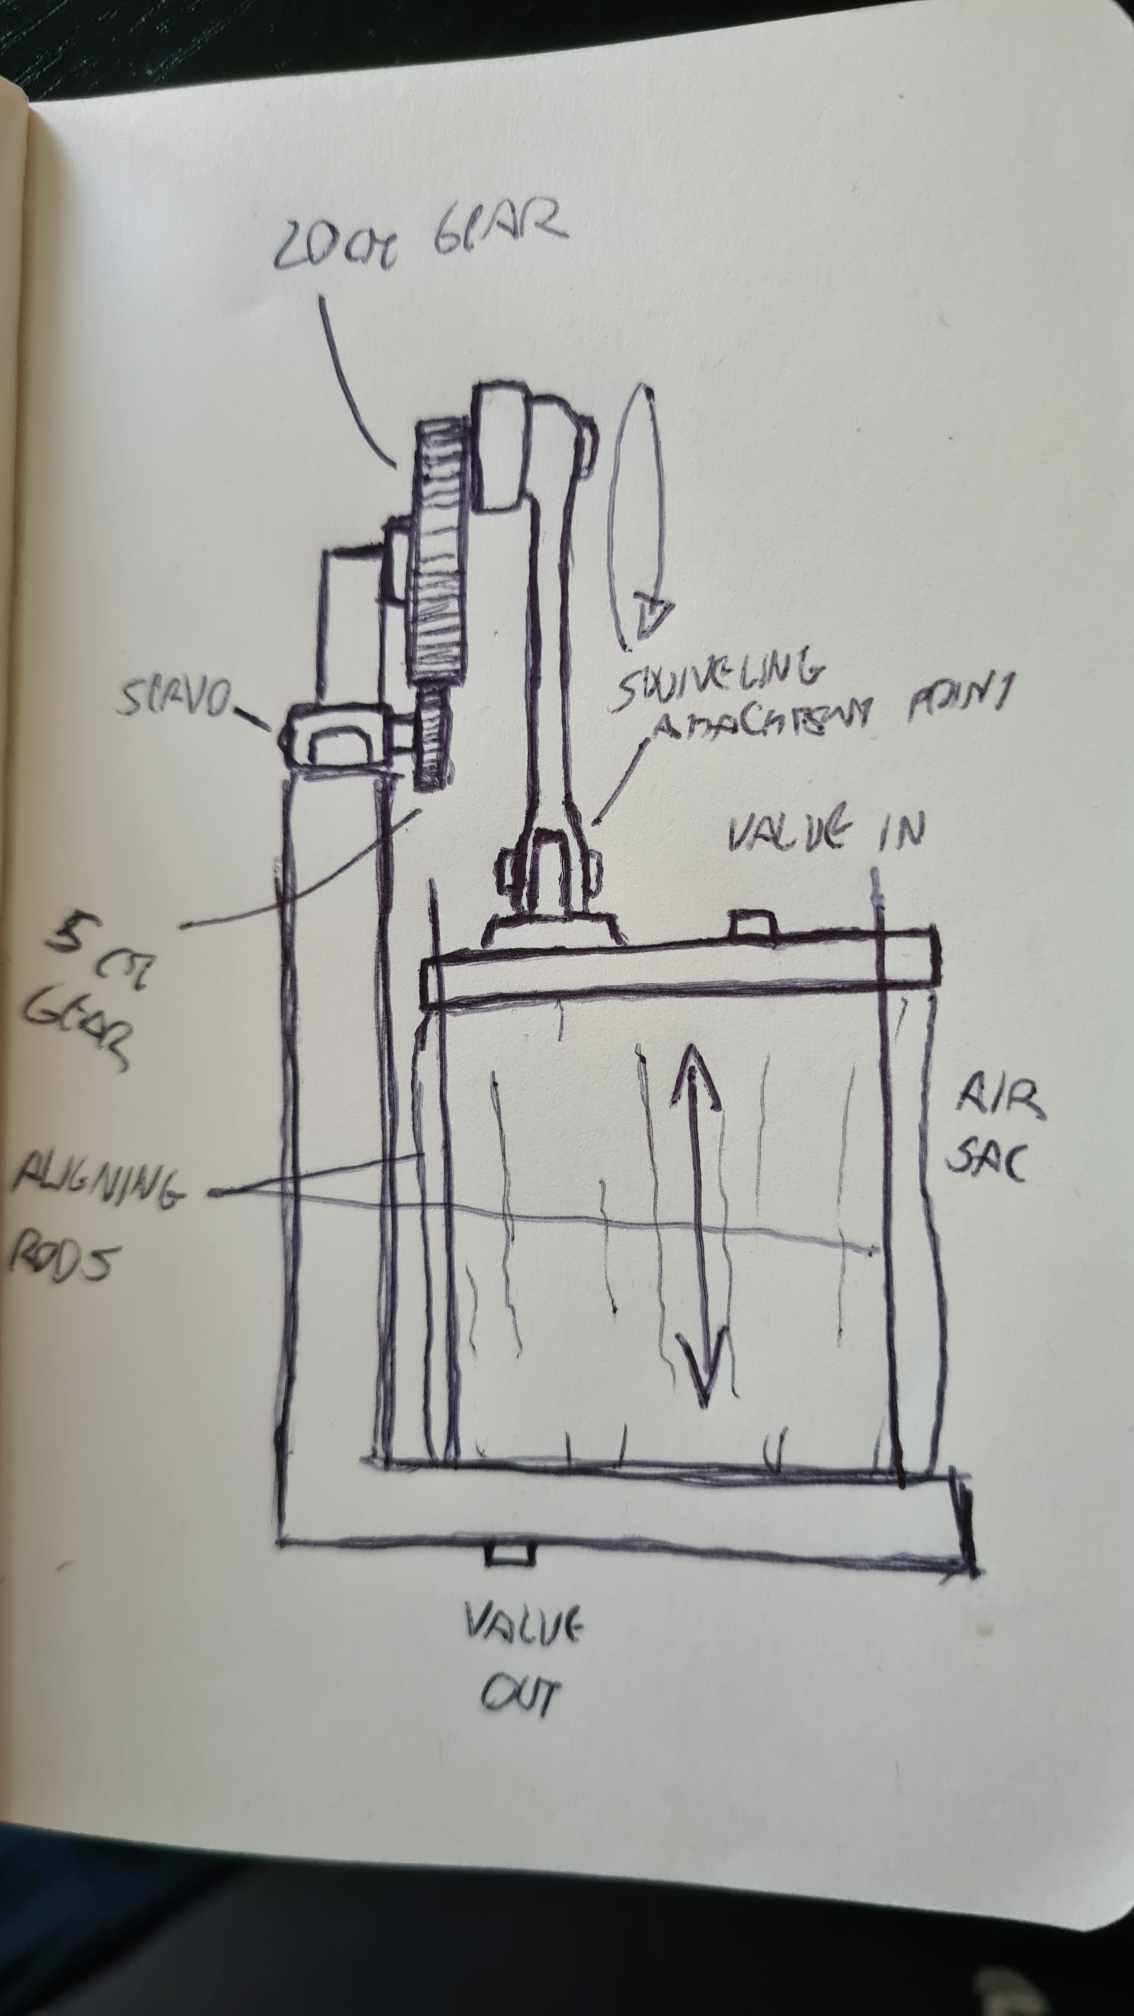 20CM GEAR
SERVO
SWIVELING
ATTACHMENT POINT
VALVE IN
5 CM
GEAR
AIR
SAC
ALIGNING
RODS
VALVE
OUT